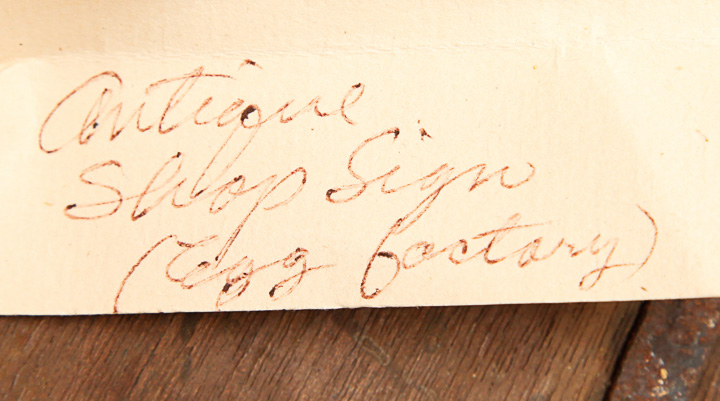 Antique
Shop Sign
(Egg factory)